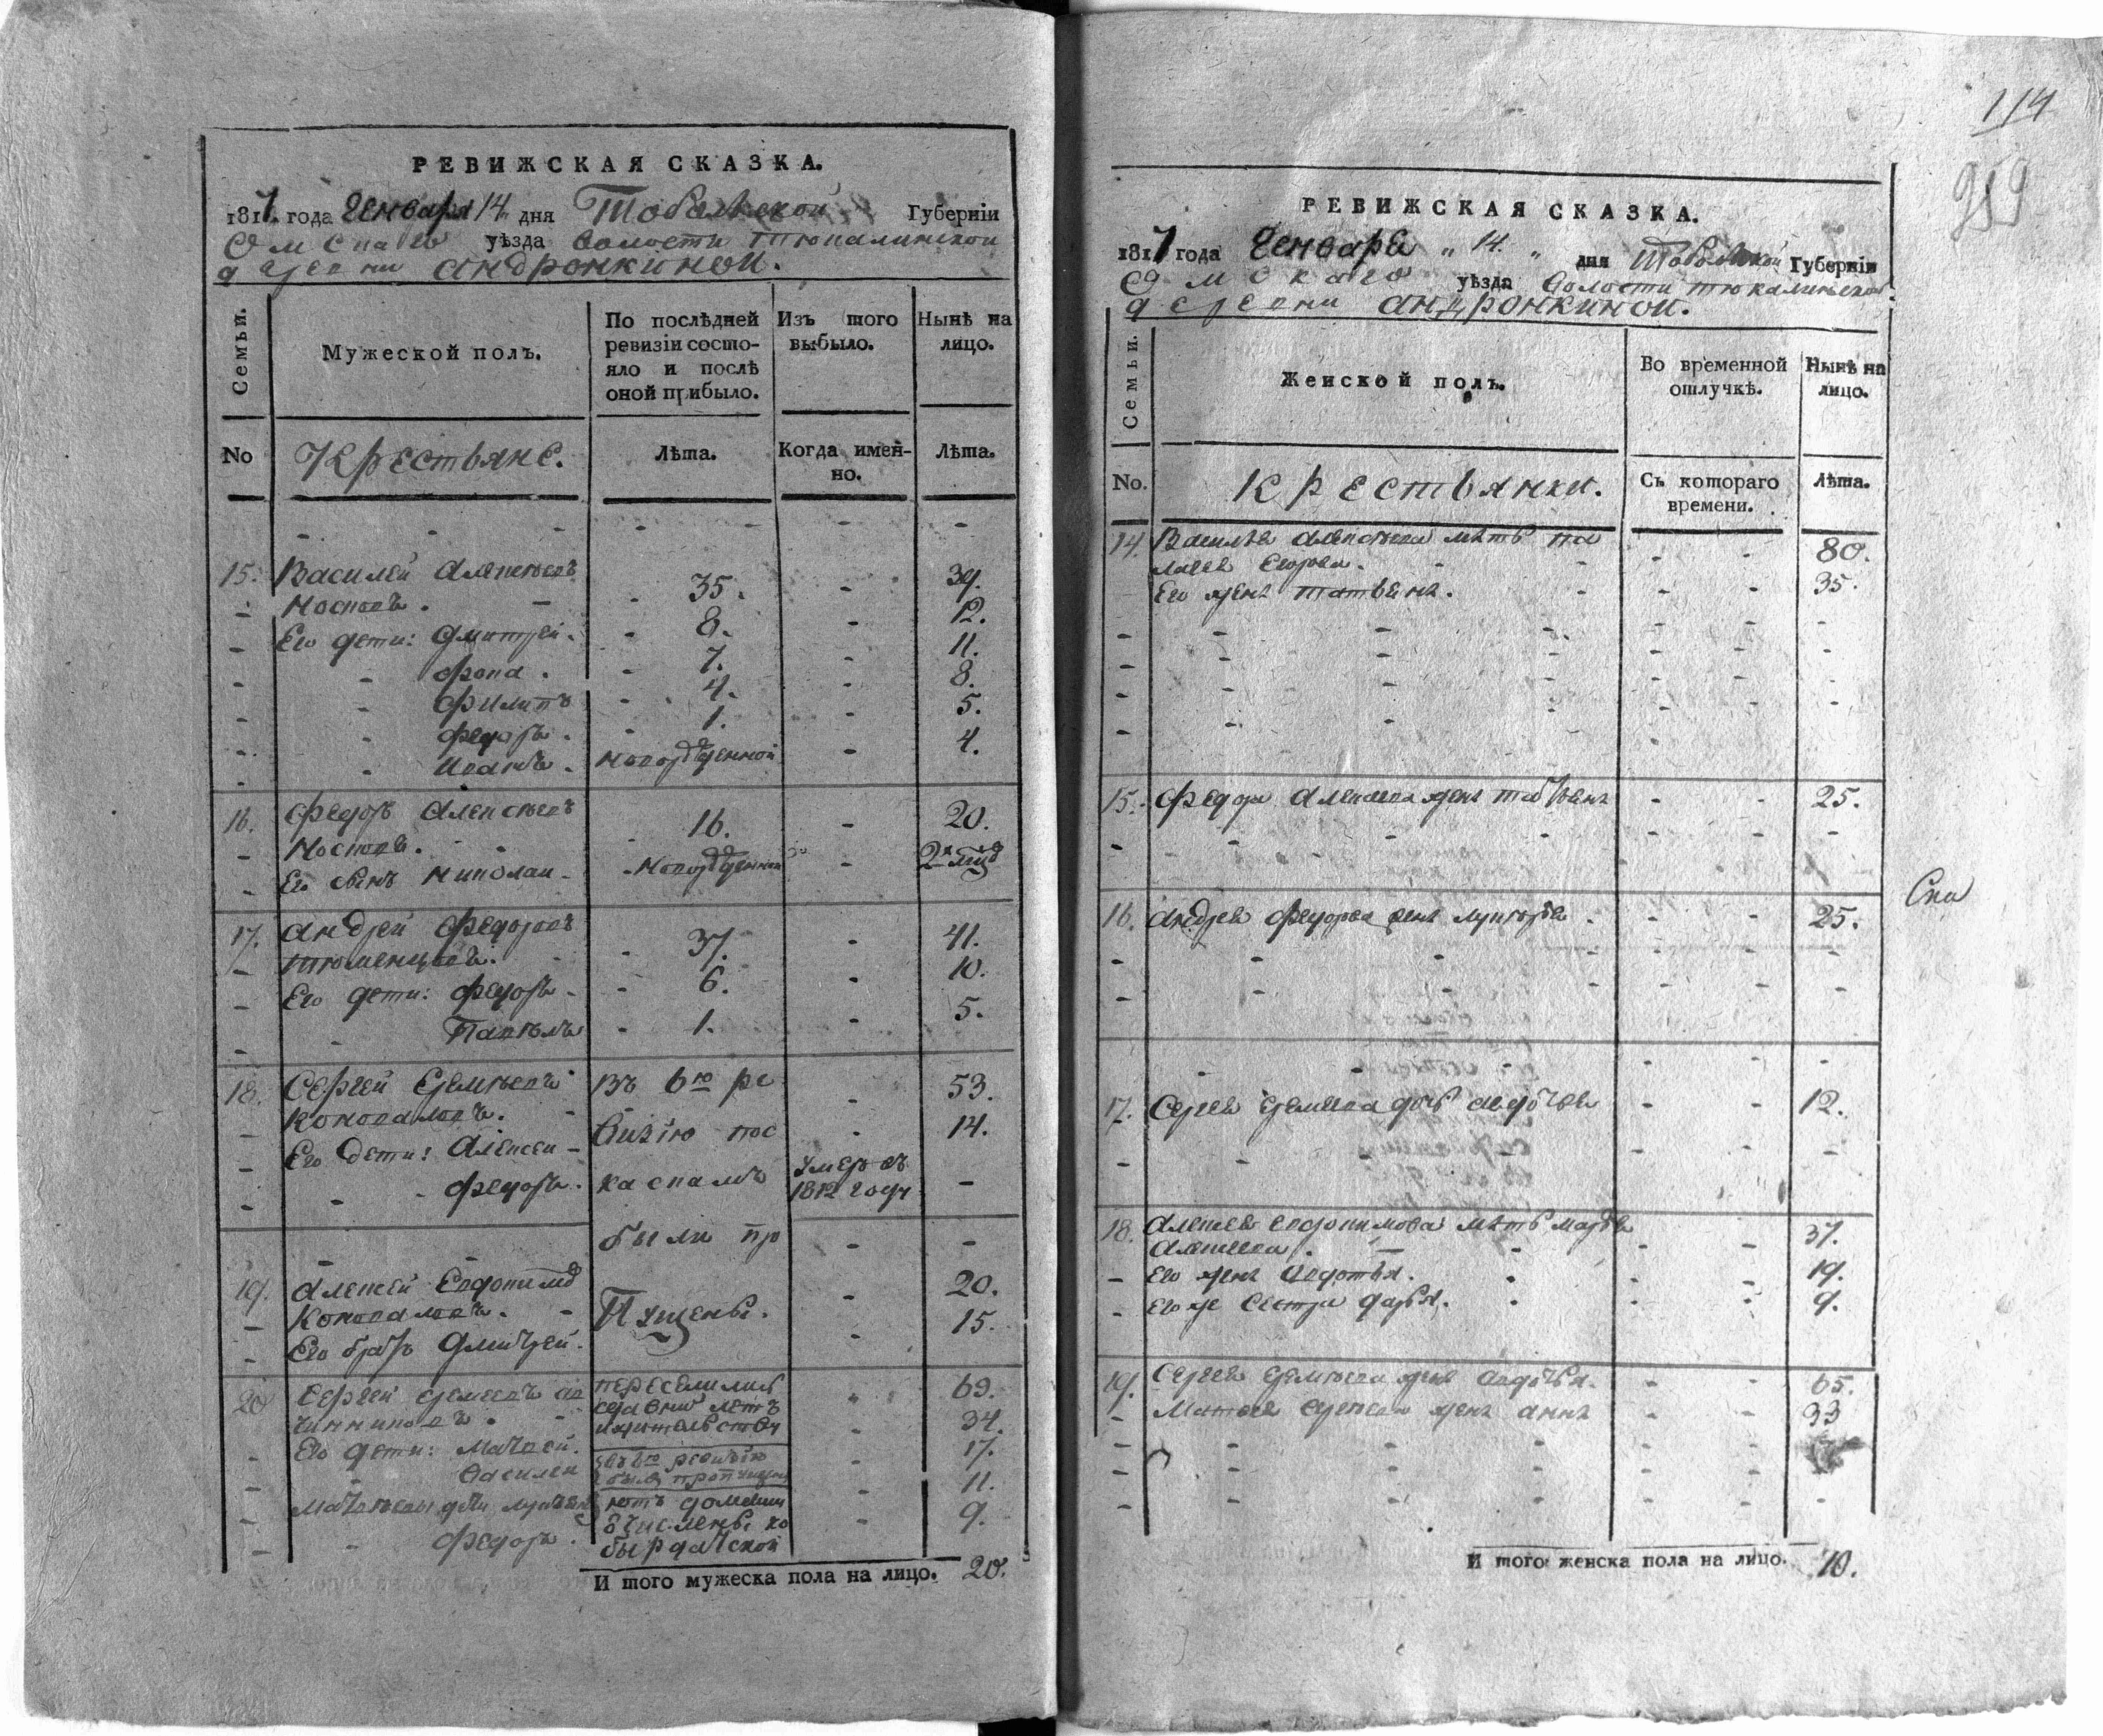 РЕВИЖСКАЯ СКАЗКА.
1817. года Генваря 14. дня Тобольской Губернїи
Омскаго уѣзда волости тюкалинской
деревни андронкиной.
Семьи.
Мужеской полъ.
По послѣдней ревизїи состояло и послѣ оной прибыло.
Изъ того выбыло.
Нынѣ на лицо.
No
Крестьяне.
Лѣта.
Когда именно.
Лѣта.
15. Василей Алексѣевъ 35. 39.
Носковъ. 8. 12.
Его дети: Дмитрей. 7. 11.
фока. 4. 8.
Филипъ 1. 5.
федоръ. новорожденной 4.
Иванъ.
16. Федоръ Алексѣевъ 16. 20.
Носковъ.
Его сынъ Николаи новорожденной
17. Андрей Федоровъ 37. 41.
тюменцовъ. 6. 10.
Его дети: федоръ 1. 5.
Павелъ
18. Сергей Еремѣевъ въ 6ю ре 53.
Коноваловъ. визїю пос 14.
Его дети: Алексеи
федоръ. каскамъ умеръ въ 1812 году
были пр
19. Алексей 20.
Коноваловъ. пущены. 15.
Его братъ Дмитрей.
20 Сергей Еремеевъ переселились 69.
34.
Его дети: Матвей. 17.
Василеи 11.
9.
федоръ.
И того мужеска пола на лицо. 20.
114
959
РЕВИЖСКАЯ СКАЗКА.
1817 года Генваря „ 14. „ дня Тобольской Губернїи
Омскаго уѣзда волости тюкалинской
деревни андронкиной.
Семьи.
Женской полъ.
Во временной отлучкѣ.
Нынѣ на лицо.
No.
Крестьянки.
Съ котораго времени.
Лѣта.
14. Василья Алексѣева мать 80.
Егорова. 35.
Его жена татьяна.
15. Федора Алексеева жена 25.
16. Андрея Федорова жена лукерья. 25.
17. Сергея Еремеева дочь авдотья 12.
18. Алексея мать марья 37.
Алексеева. 19.
Его жена Авдотья. 9.
Его же сестра дарья.
19. Сергея Еремѣева жена авдотья. 65.
Матвея Сергеева жена анна 33
И того женска пола на лицо. 10.
Ски